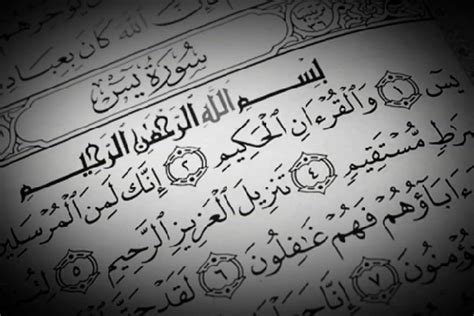 ٱللَّهَ كَانَ بِعِبَادِ
سُورَةُ يسٓ
بِسْمِ ٱللَّهِ ٱلرَّحْمَٰنِ ٱلرَّحِيمِ
يسٓ ١ وَٱلْقُرْءَانِ ٱلْحَكِيمِ ٢ إِنَّكَ لَمِنَ ٱلْمُرْسَلِيـ
ـرَٰطٍ مُّسْتَقِيمٍ ٤ تَنزِيلَ ٱلْعَزِيزِ ٱلرَّحِيمِ ٥ لِتُـ
ءَابَآؤُهُمْ فَهُمْ غَٰفِلُونَ ٦ لَقَدْ حَقَّ
ـؤْمِنُونَ ٧ إِنَّا جَـ